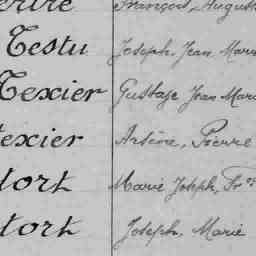 François, August
Testu Joseph Jean Marie
Texier Gustave Jean Mari
texier Arsène, Pierre
tort Marie Joseph, Fr
tort Joseph, Marie